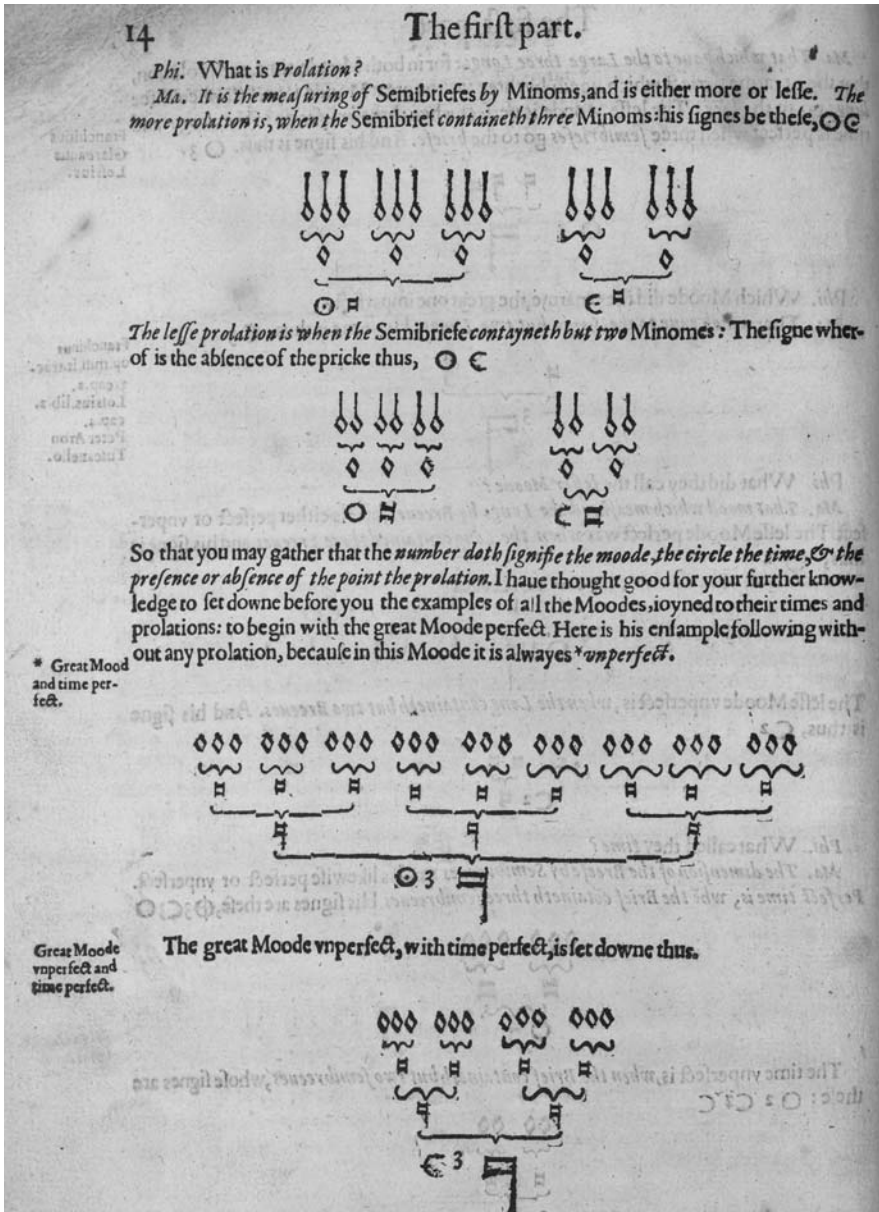 14 The firſt part.
Phi. What is Prolation?
Ma. It is the meaſuring of Semibriefes by Minoms, and is either more or leſſe. The
more prolation is, when the Semibrief containeth three Minoms: his ſignes be theſe,
The leſſe prolation is when the Semibriefe contayneth but two Minomes: The ſigne wher-
of is the abſence of the pricke thus,
So that you may gather that the number doth ſignifie the moode, the circle the time, & the
preſence or abſence of the point the prolation. I haue thought good for your further know-
ledge to ſet downe before you the examples of all the Moodes, ioyned to their times and
prolations: to begin with the great Moode perfect. Here is his enſample following with-
out any prolation, becauſe in this Moode it is alwayes *vnperfect.
* Great Mood
and time per-
fect.
3
Great Moode
vnperfect and
time perfect.
The great Moode vnperfect, with time perfect, is ſet downe thus.
3